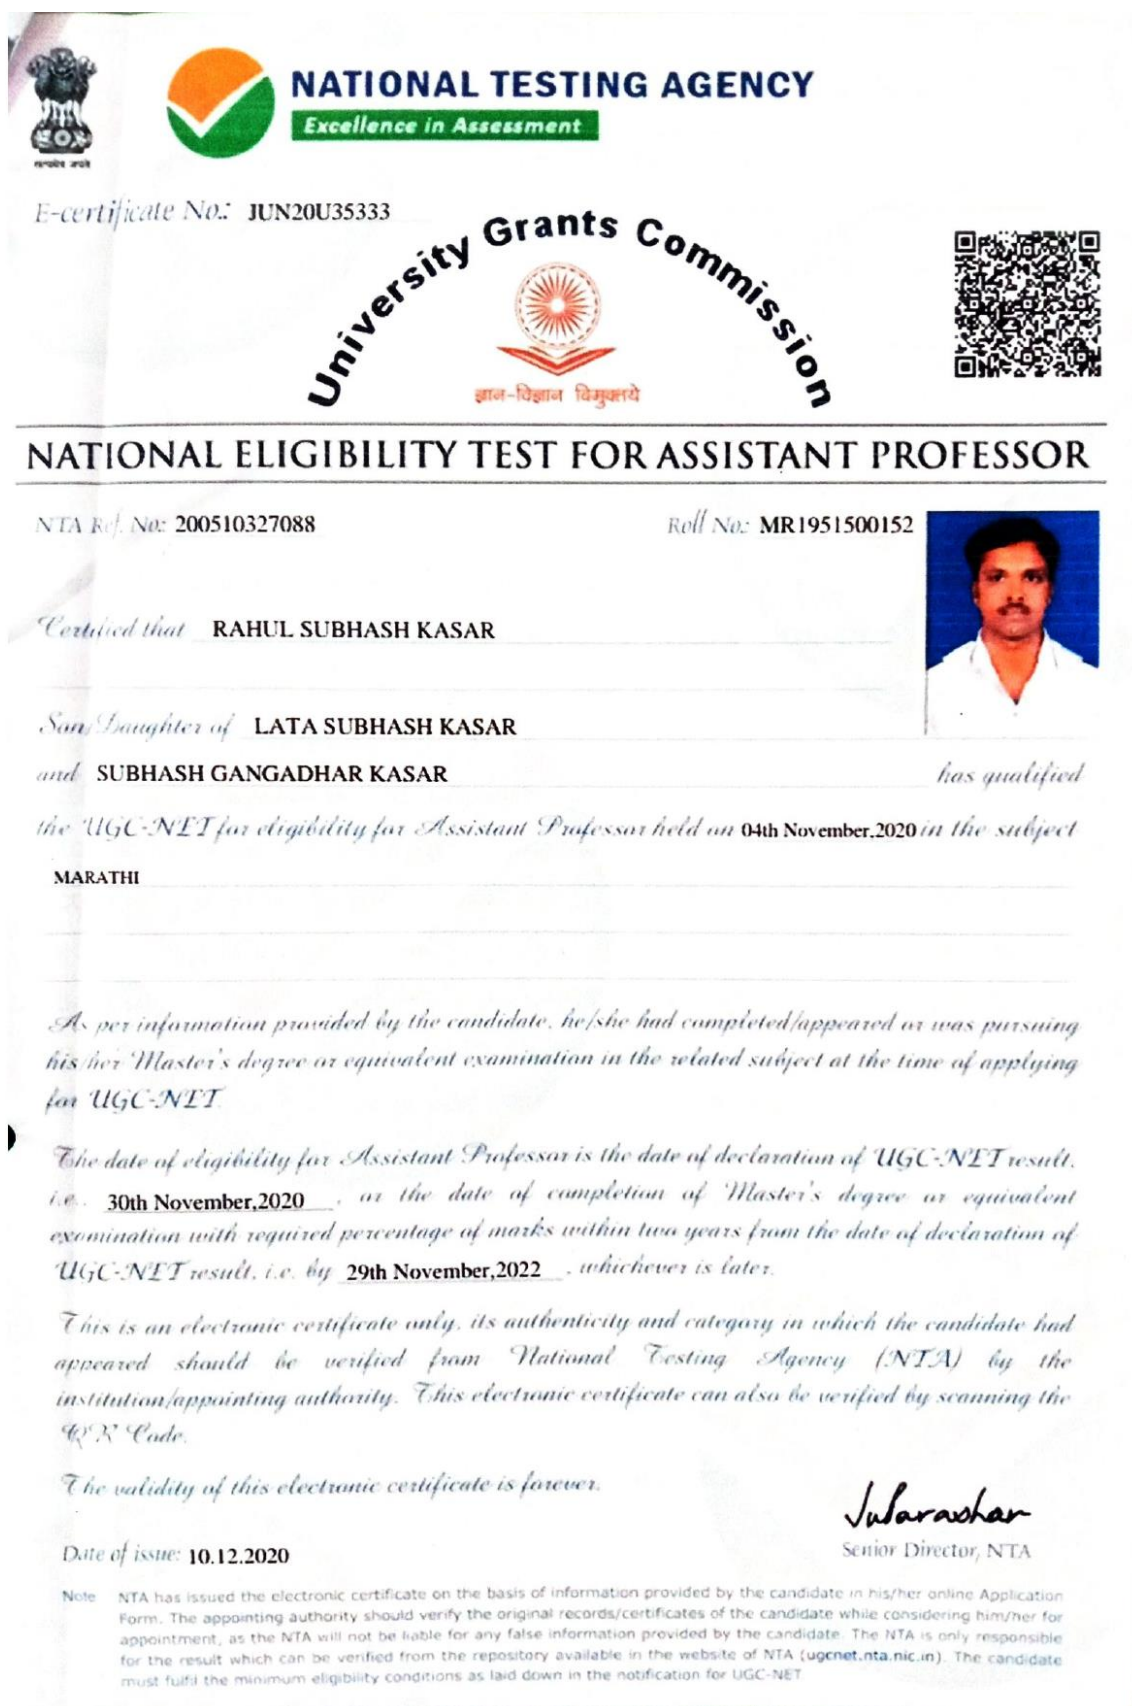 सत्यमेव जयते
NATIONAL TESTING AGENCY
Excellence in Assessment
E-certificate No.: JUN20U35333
University Grants Commission
ज्ञान-विज्ञान विमुक्तये
NATIONAL ELIGIBILITY TEST FOR ASSISTANT PROFESSOR
NTA Ref. No: 200510327088 Roll No: MR1951500152
Certified that RAHUL SUBHASH KASAR
Son/Daughter of LATA SUBHASH KASAR
and SUBHASH GANGADHAR KASAR has qualified
the UGC-NET for eligibility for Assistant Professor held on 04th November,2020 in the subject
MARATHI
As per information provided by the candidate, he/she had completed/appeared or was pursuing
his/her Master's degree or equivalent examination in the related subject at the time of applying
for UGC-NET.
The date of eligibility for Assistant Professor is the date of declaration of UGC-NET result,
i.e., 30th November,2020 , or the date of completion of Master's degree or equivalent
examination with required percentage of marks within two years from the date of declaration of
UGC-NET result, i.e. by 29th November,2022 , whichever is later.
This is an electronic certificate only, its authenticity and category in which the candidate had
appeared should be verified from National Testing Agency (NTA) by the
institution/appointing authority. This electronic certificate can also be verified by scanning the
QR Code.
The validity of this electronic certificate is forever.
Senior Director, NTA
Date of issue: 10.12.2020
Note NTA has issued the electronic certificate on the basis of information provided by the candidate in his/her online Application
Form. The appointing authority should verify the original records/certificates of the candidate while considering him/her for
appointment, as the NTA will not be liable for any false information provided by the candidate. The NTA is only responsible
for the result which can be verified from the repository available in the website of NTA (ugcnet.nta.nic.in). The candidate
must fulfil the minimum eligibility conditions as laid down in the notification for UGC-NET